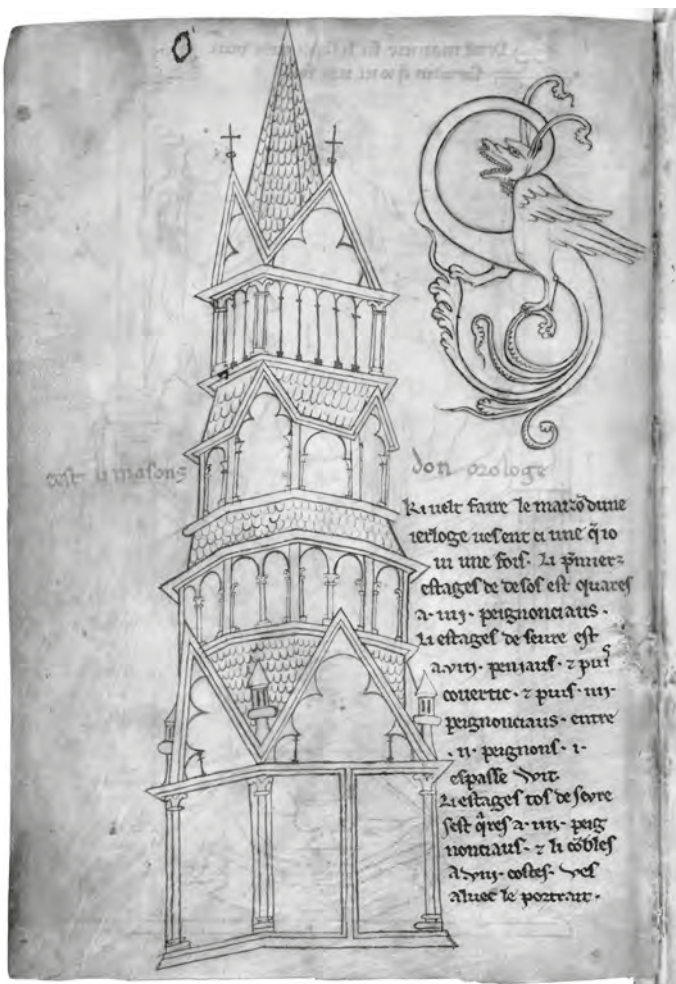 cest li masons don orologe
Ki velt faire le maizō dune
ierloge ves ent ci une q̄ io
vi une fois. Li p̄miers
estages de desos est quares
a .iiij. peignonciaus.
Li estages de seure est
a .viij. peniaus. ⁊ puis
covertic. ⁊ puis .iiij.
peignonciaus. entre
.ii. peignons .i.
espasse wit
Li estages tos de sevre
sest q̄res a .iiij. peig
nonciaus. ⁊ li cōbles
a .viij. costes. ves
aluec le portrait.